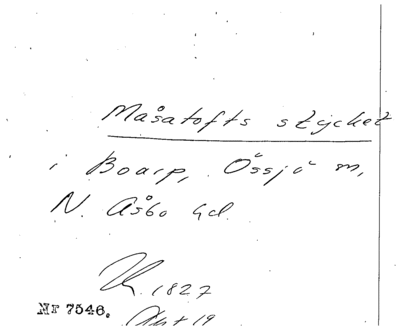 Måsatofts stycket
i Boarp, Össjö sn,
N. Åsbo hd.
1827
Nr 7546.